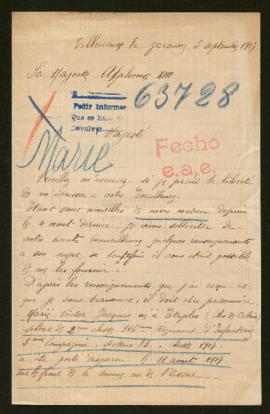 Villeneuve la garenne 3 septembre 1917
Sa Majesté Alphonse XIII
63728
Pedir informes
Que se ha
Devolver
Majesté
Fecho
e.a.e.
Marie
Veuillez m'excuser si je prends la liberté
de m'adresser a votre Excellence
Etant sans nouvelles de mon neveu depuis
le août dernier je viens solliciter de
votre haute bienveillance quelques renseignements
a son sujet si toutefois il vous était possible
de me les fournir.
D'après les renseignements que j'ai reçu
que je vous transmets, il doit être prisonnier
Marie Victor Jacques né à Etaples (Pas de Calais)
soldat de 2me classe Regiment d'Infanterie
Compagnie
a été porté disparu le 11 août 1917
sur le front de la Somme ou de l'Aisne.